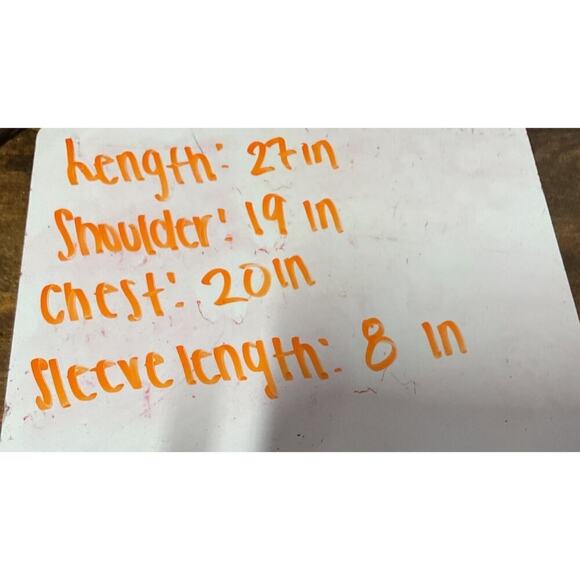 Length: 27 in
Shoulder: 19 in
Chest: 20 in
Sleeve length: 8 in